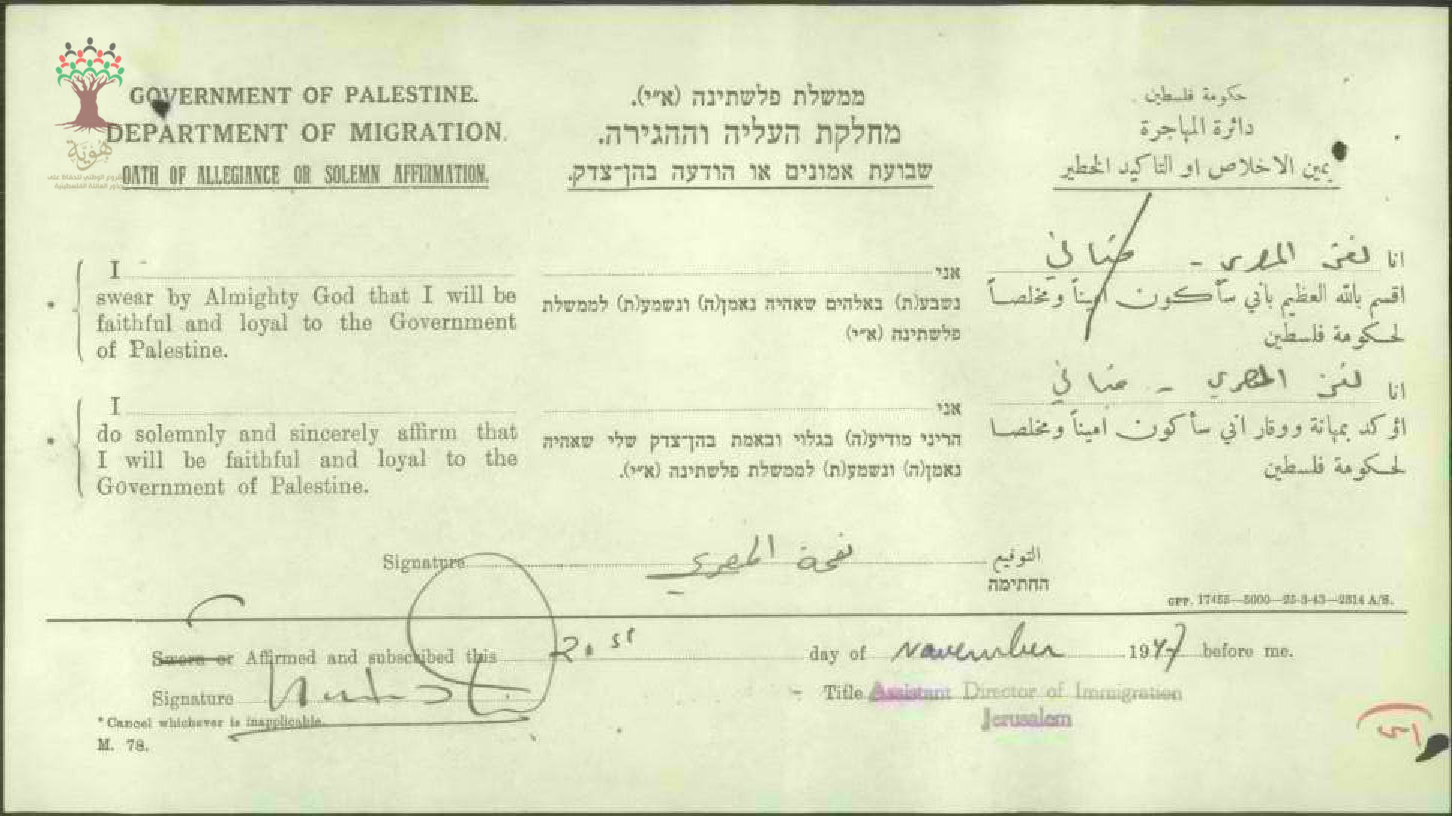 GOVERNMENT OF PALESTINE.
DEPARTMENT OF MIGRATION.
OATH OF ALLEGIANCE OR SOLEMN AFFIRMATION.
ממשלת פלשתינה (א״י).
מחלקת העליה וההגירה.
שבועת אמונים או הודעה בהן־צדק.
حكومة فلسطين
دائرة المهاجرة
يمين الاخلاص او التاكيد الخطير
هوية
I
swear by Almighty God that I will be
faithful and loyal to the Government
of Palestine.
אני
נשבע(ת) באלהים שאהיה נאמן(ה) ונשמע(ת) לממשלת
פלשתינה (א״י)
انا المصري -
اقسم بالله العظيم باني سأكون اميناً ومخلصاً
لحكومة فلسطين
I
do solemnly and sincerely affirm that
I will be faithful and loyal to the
Government of Palestine.
אני
הריני מודיע(ה) בגלוי ובאמת בהן־צדק שלי שאהיה
נאמן(ה) ונשמע(ת) לממשלת פלשתינה (א״י).
انا المصري -
اؤكد بمهانة ووقار اني سأكون اميناً ومخلصا
لحكومة فلسطين
Signature المصري التوقيع
החתימה
GPP. 17455—5000—25-3-43—2314 A/S.
Sworn or Affirmed and subscribed this day of November 1947 before me.
Signature
Title Assistant Director of Immigration
Jerusalem
* Cancel whichever is inapplicable.
M. 78.